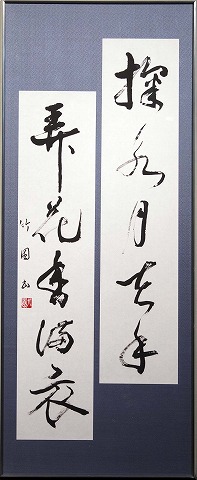 掬水月在手
弄花香満衣
竹園